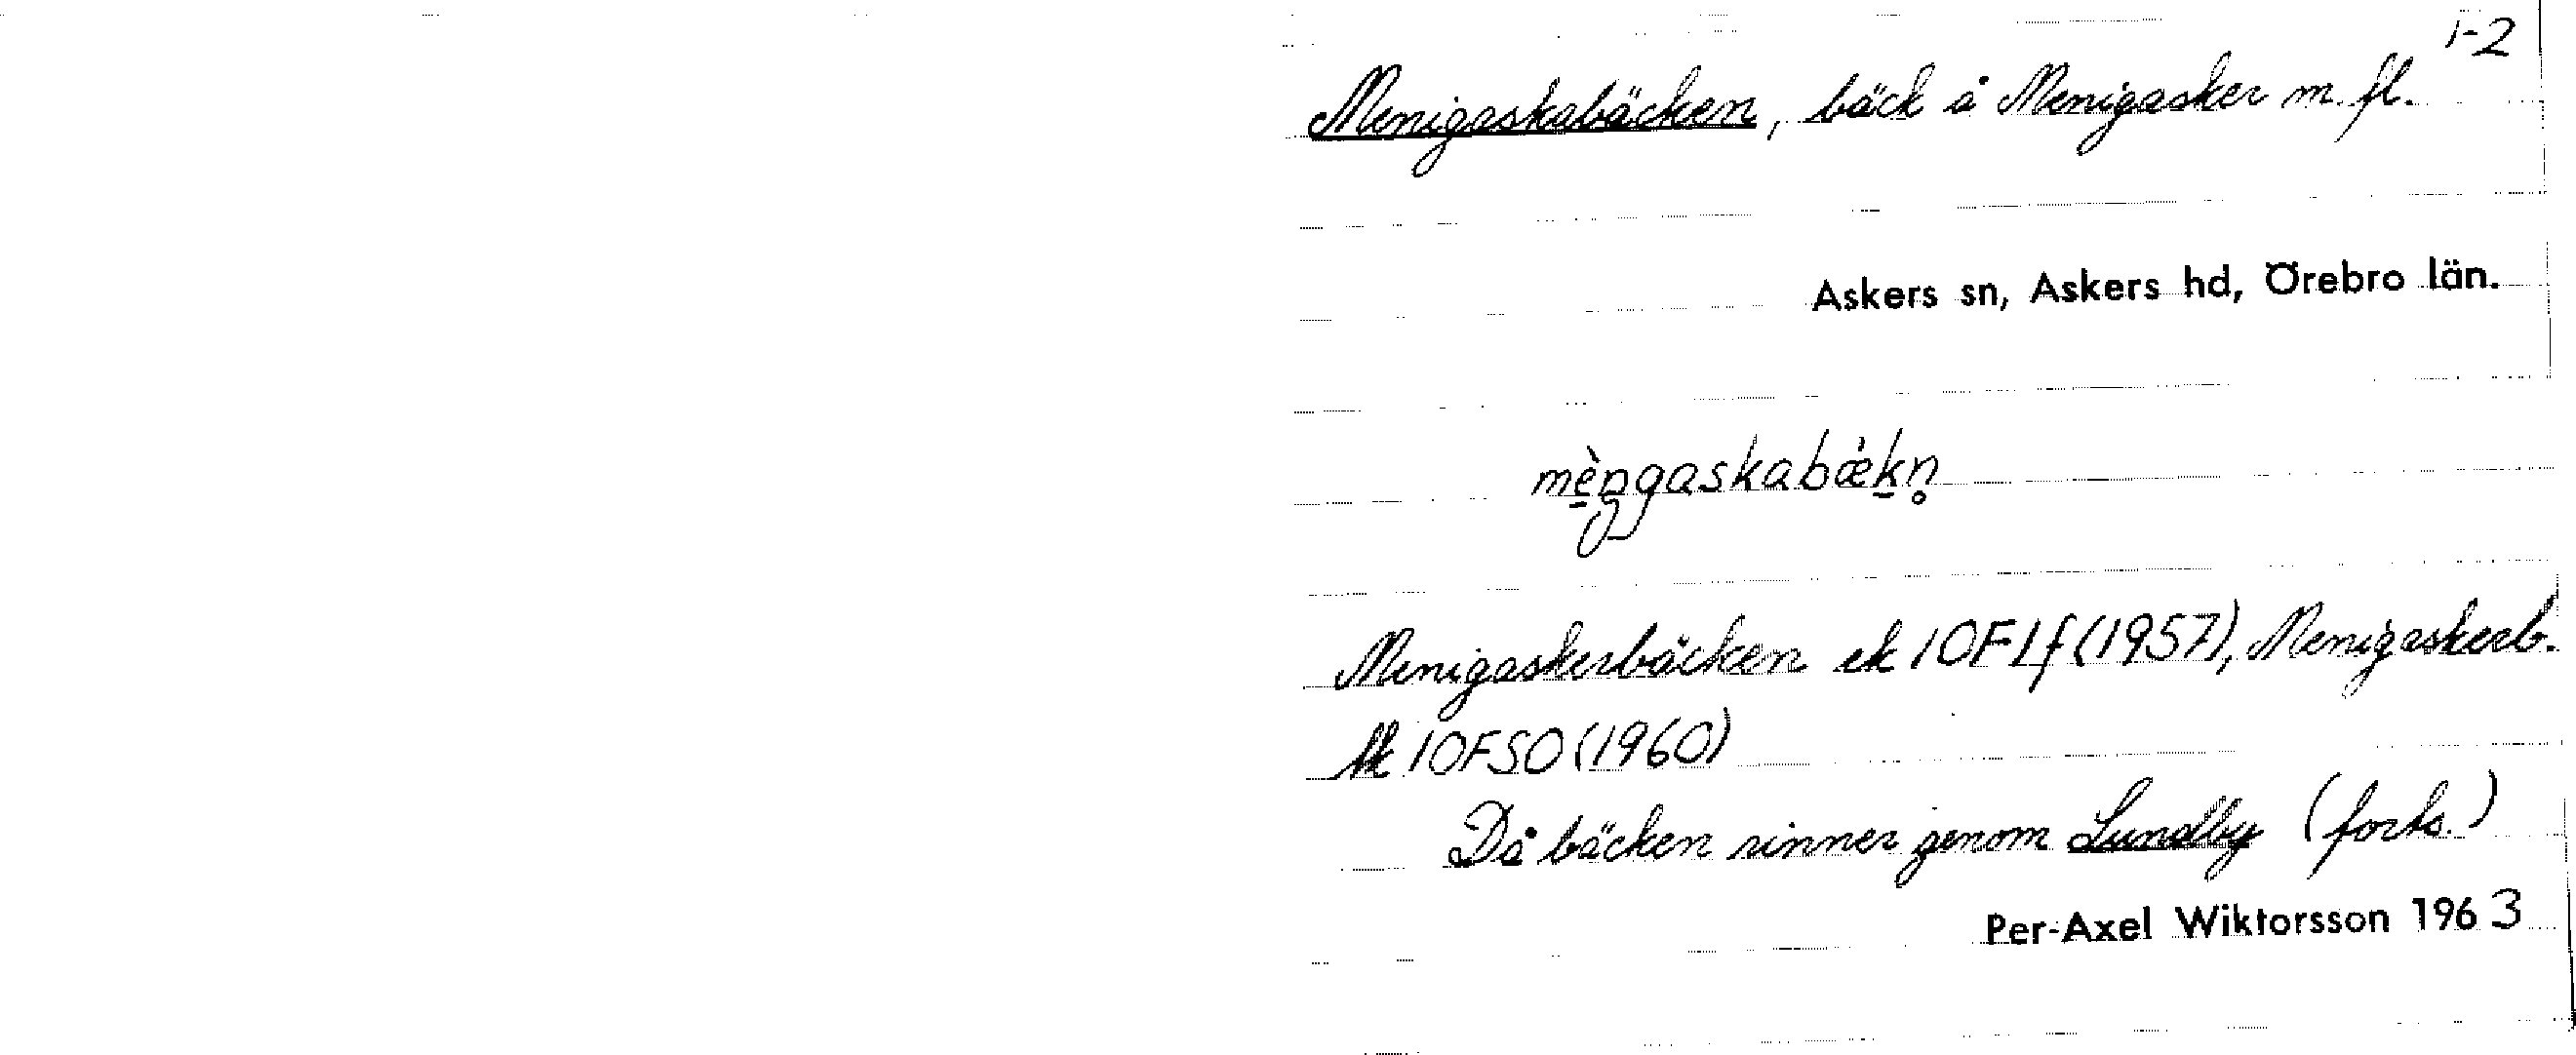 1-2
Menigaskabäcken, bäck å Menigasker m. fl.
Askers sn, Askers hd, Örebro län.
mèngaskabæ̀kn̥
Menigaskerbäcken ek 10F1f (1957), Menigaskerb.
tk 10FSO (1960)
Då bäcken rinner genom Lundby (forts.)
Per-Axel Wiktorsson 1963